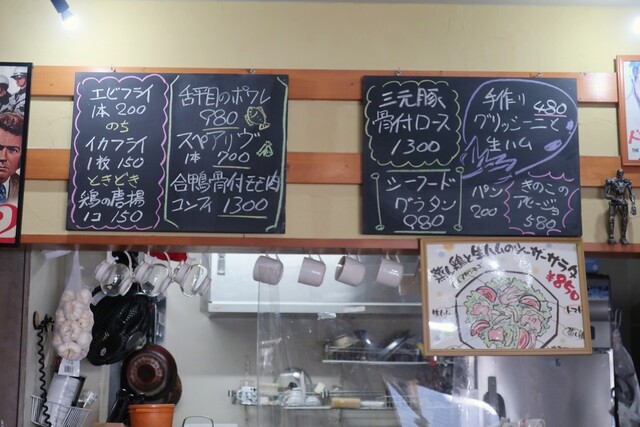 エビフライ
1本 200
のち
イカフライ
1枚 150
ときどき
鶏の唐揚
1コ 150
舌平目のポワレ
980
スペアリヴ
1本 700
合鴨骨付モモ肉
コンフィ 1300
三元豚
骨付ロース
1300
シーフード
グラタン
980
手作り 480
グリッシーニと
生ハム
パン
200
きのこの
アヒージョ
580
蒸し鶏と生ハムのシーザーサラダ
¥850